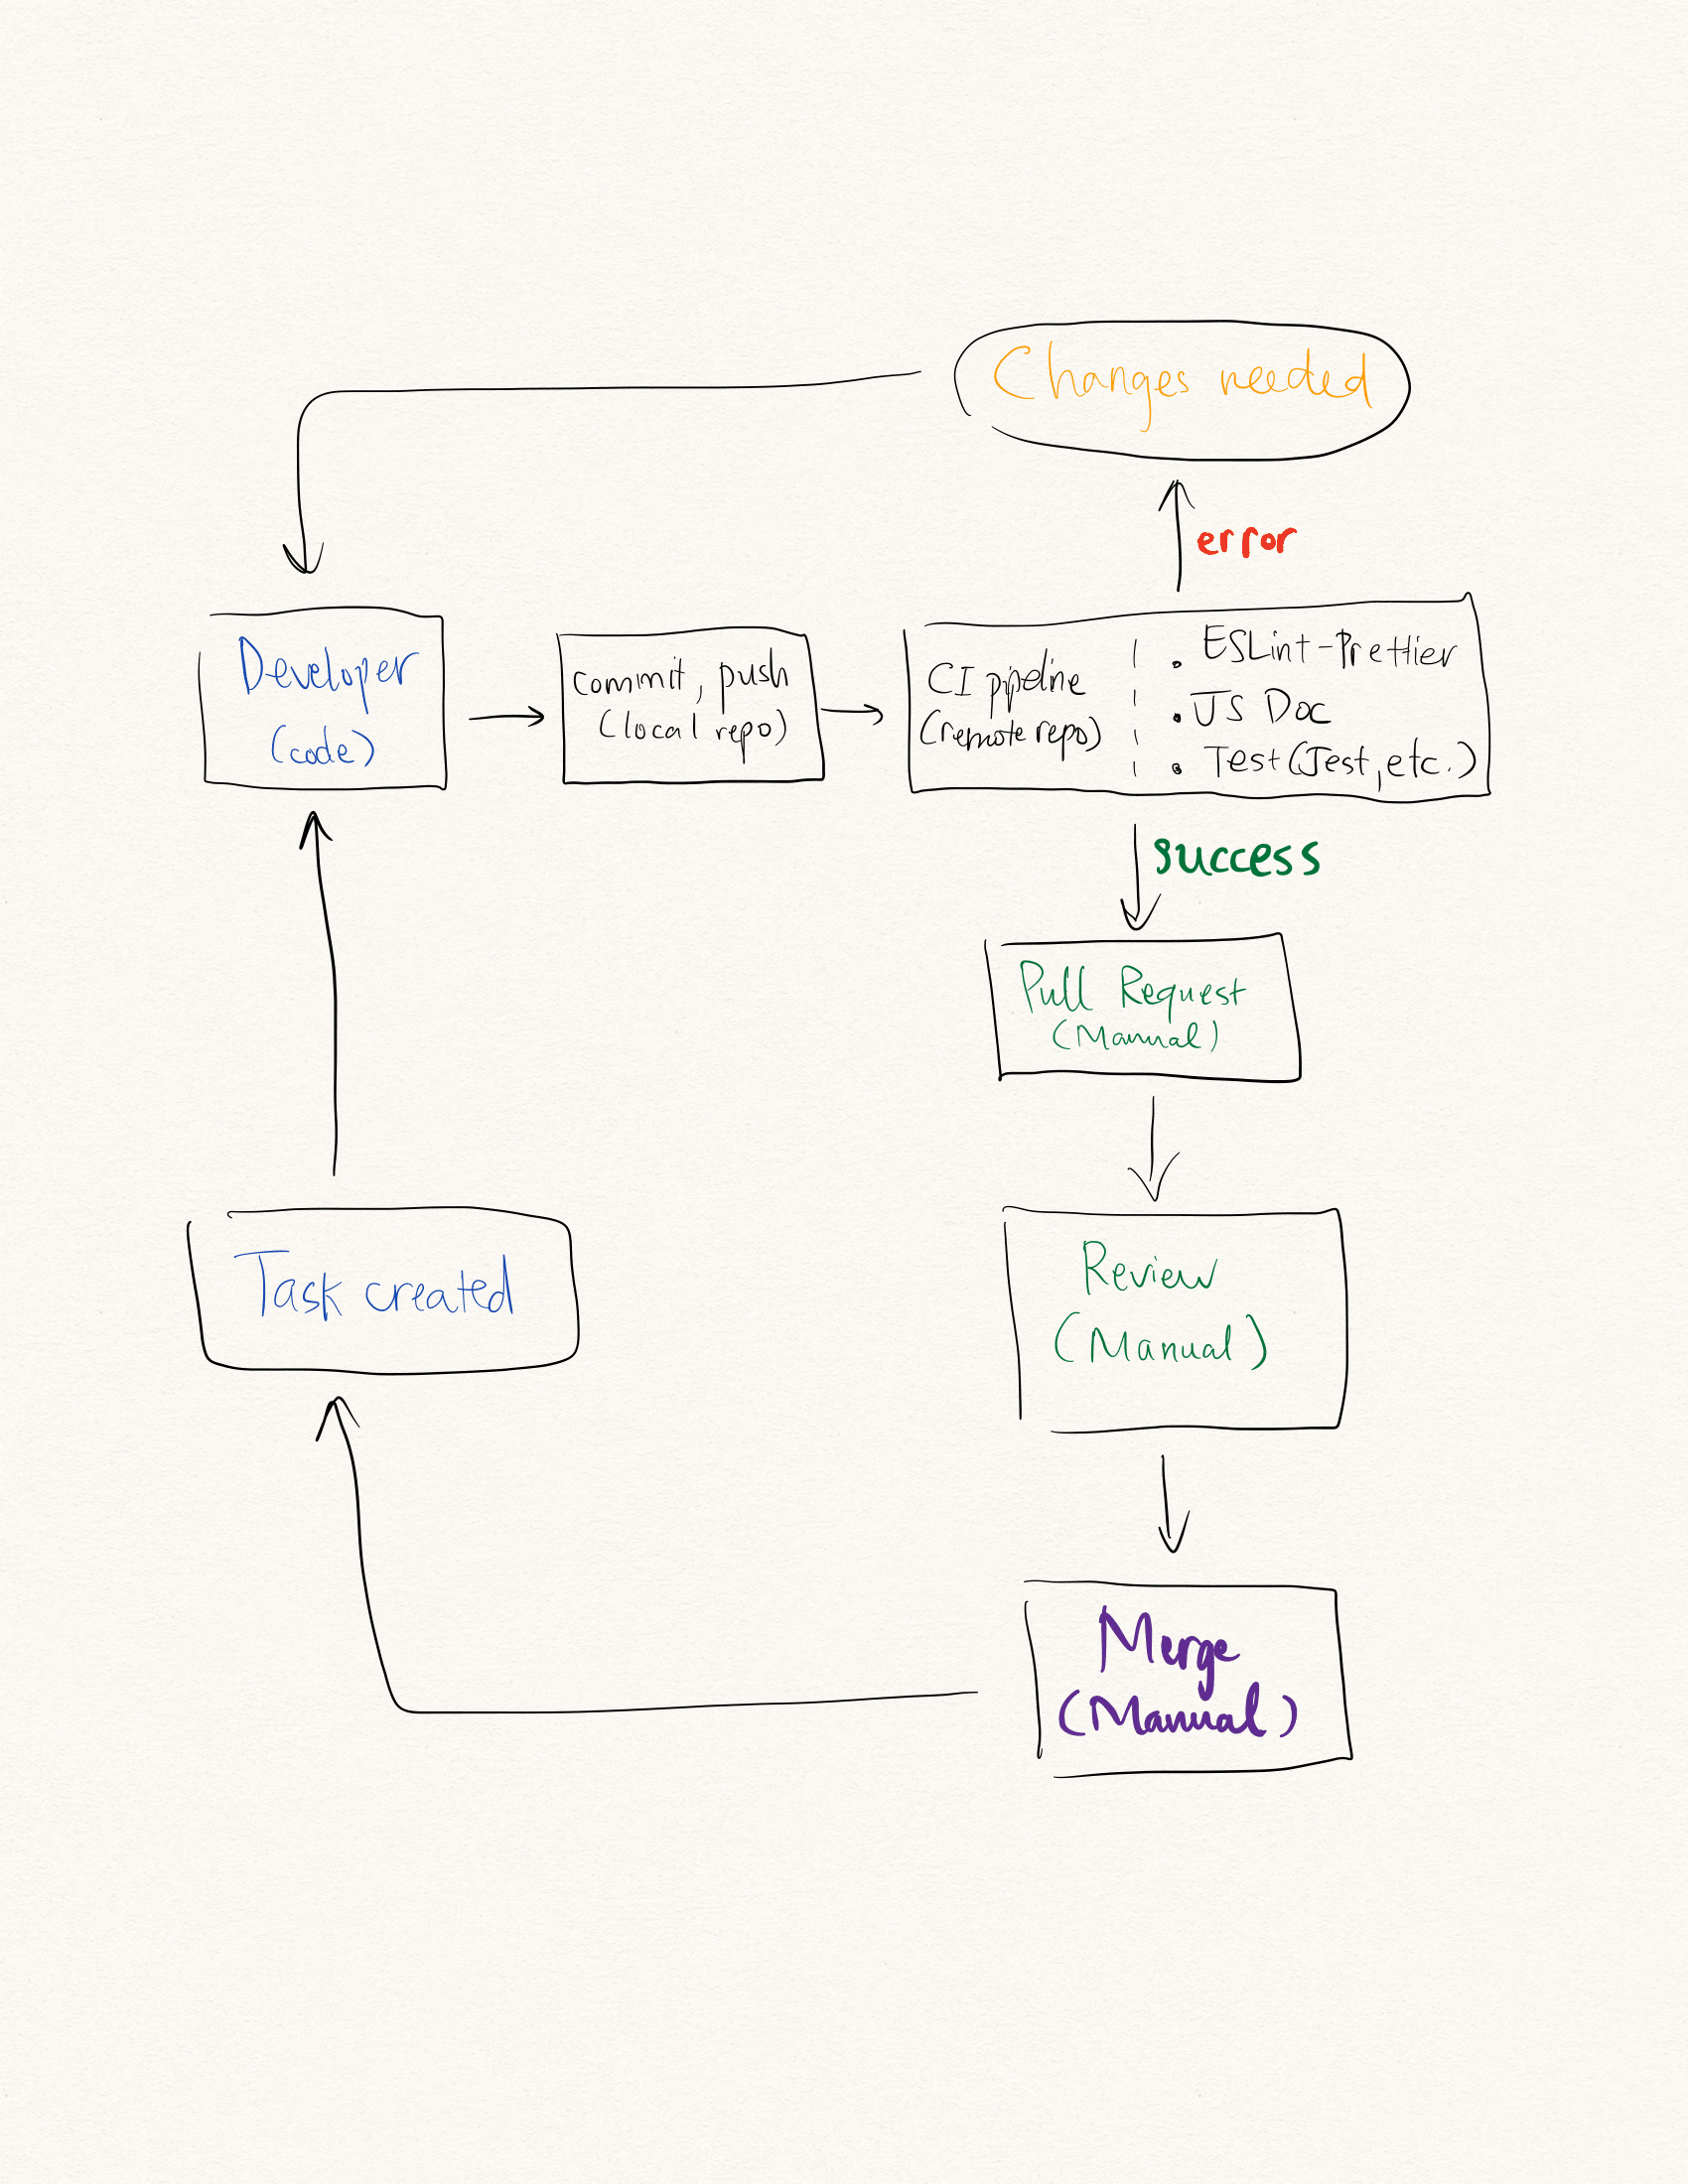 Changes needed
error
Developer
(code)
commit, push
(local repo)
CI pipeline
(remote repo)
. ESLint-Prettier
. JS Doc
. Test (Jest, etc.)
success
Pull Request
(Manual)
Task created
Review
(Manual)
Merge
(Manual)